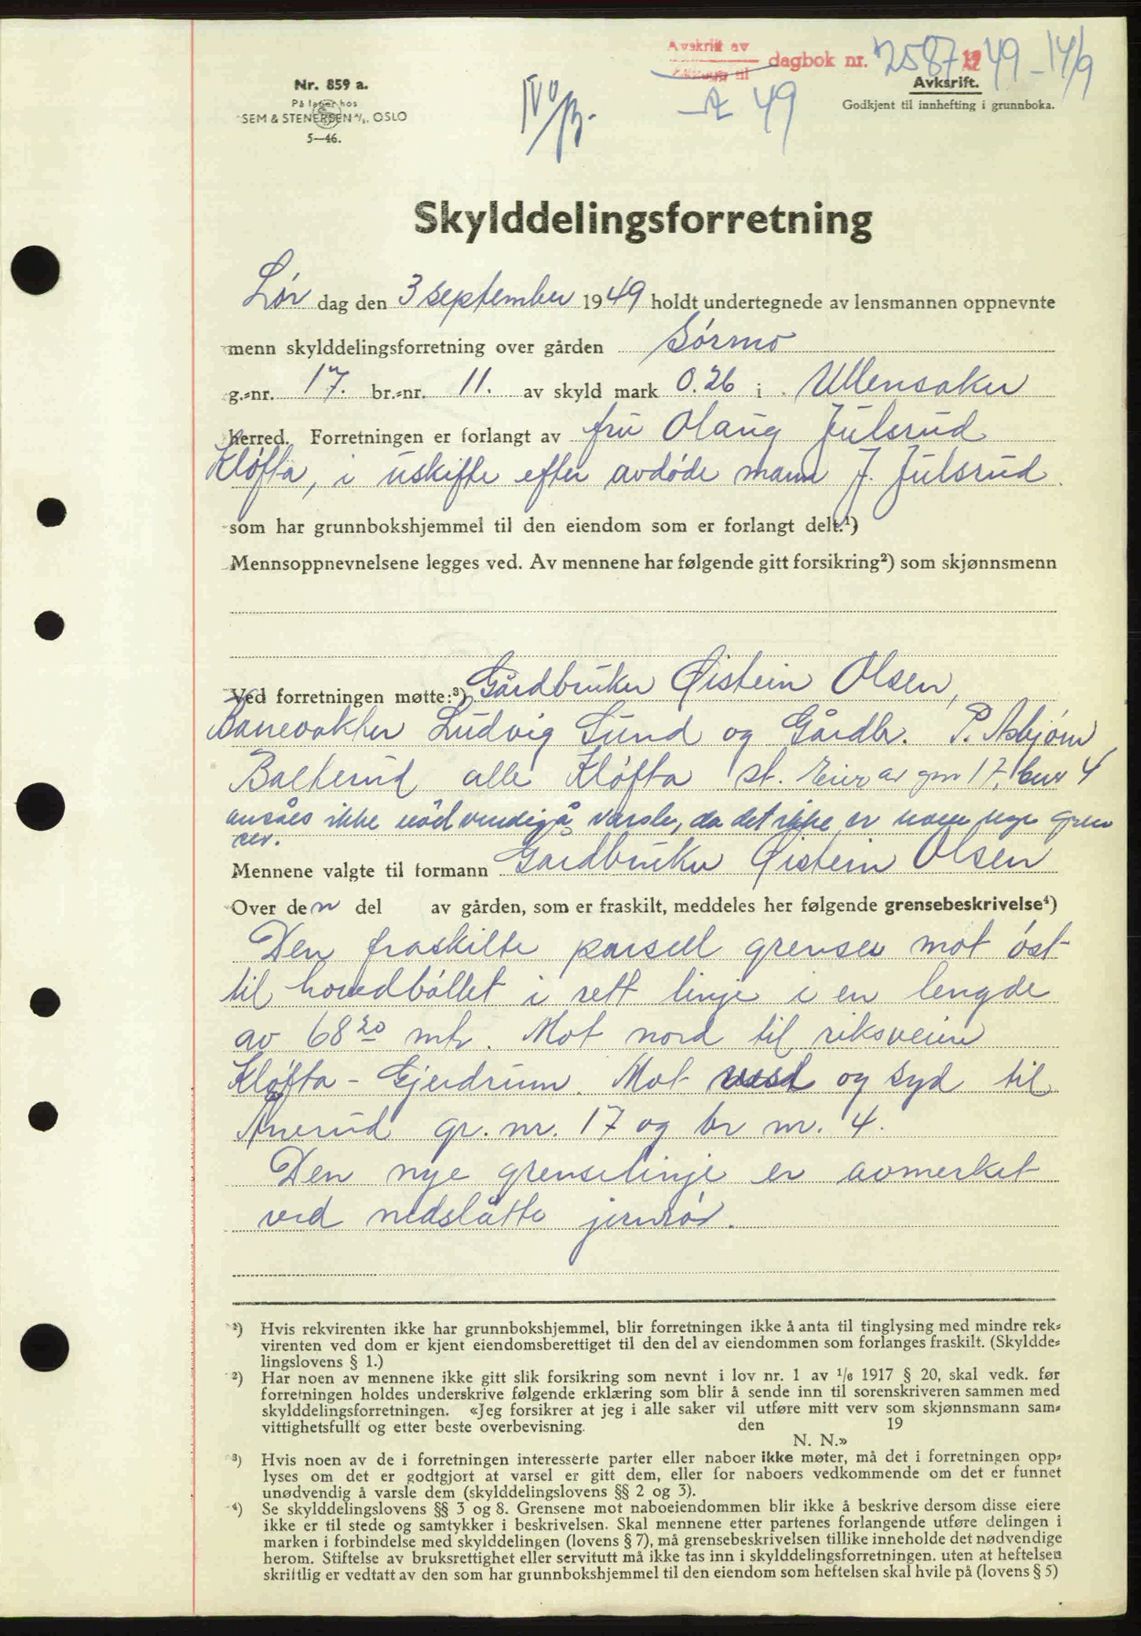 Avskrift av
dagbok nr. 2587 1949 - 14/9
Avskrift.
Godkjent til innhefting i grunnboka.
Nr. 859 a.
På lager hos
SEM & STENERSEN A/S. OSLO
5—46.
49
Skylddelingsforretning
Lør dag den 3 september 1949 holdt undertegnede av lensmannen oppnevnte
menn skylddelingsforretning over gården Sørmo
g.-nr. 17. br.-nr. 11. av skyld mark 0.26 i Ullensaker
herred. Forretningen er forlangt av fru Olaug Julsrud
Kløfta, i uskifte efter avdøde mann J. Julsrud.
som har grunnbokshjemmel til den eiendom som er forlangt delt.¹)
Mennsoppnevnelsene legges ved. Av mennene har følgende gitt forsikring²) som skjønnsmenn
Ved forretningen møtte:³) Gårdbruker Øistein Olsen,
Banevokter Ludvig Sund og Gårdbr. P. Asbjørn
Balterud alle Kløfta st. Eier av gnr 17, bnr 4
ansåes ikke nødvendig å varsle, da det ikke er noen nye gren
ser.
Mennene valgte til formann Gårdbruker Øistein Olsen
Over den del av gården, som er fraskilt, meddeles her følgende grensebeskrivelse⁴)
Den fraskilte parsell grenser mot øst
til hovedbøllet i rett linje i en lengde
av 68 20 mtr. Mot nord til riksveien
Kløfta - Gjerdrum. Mot vest og syd til
Ånerud gr. nr. 17 og br nr. 4.
Den nye grenselinje er avmerket
ved nedslåtte jernrør.
¹) Hvis rekvirenten ikke har grunnbokshjemmel, blir forretningen ikke å anta til tinglysing med mindre rek-
virenten ved dom er kjent eiendomsberettiget til den del av eiendommen som forlanges fraskilt. (Skyldde-
lingslovens § 1.)
²) Har noen av mennene ikke gitt slik forsikring som nevnt i lov nr. 1 av 1/6 1917 § 20, skal vedk. før
forretningen holdes underskrive følgende erklæring som blir å sende inn til sorenskriveren sammen med
skylddelingsforretningen. «Jeg forsikrer at jeg i alle saker vil utføre mitt verv som skjønnsmann sam-
vittighetsfullt og etter beste overbevisning. den 19
N. N.»
³) Hvis noen av de i forretningen interesserte parter eller naboer ikke møter, må det i forretningen opp-
lyses om det er godtgjort at varsel er gitt dem, eller for naboers vedkommende om det er funnet
unødvendig å varsle dem (skylddelingslovens §§ 2 og 3).
⁴) Se skylddelingslovens §§ 3 og 8. Grensene mot naboeiendommen blir ikke å beskrive dersom disse eiere
ikke er til stede og samtykker i beskrivelsen. Skal mennene etter partenes forlangende utføre delingen i
marken i forbindelse med skylddelingen (lovens § 7), må grensebeskrivelsen tillike inneholde det nødvendige
herom. Stiftelse av bruksrettighet eller servitutt må ikke tas inn i skylddelingsforretningen. uten at heftelsen
skriftlig er vedtatt av den som har grunnbokshjemmel til den eiendom som heftelsen skal hvile på (lovens § 5)